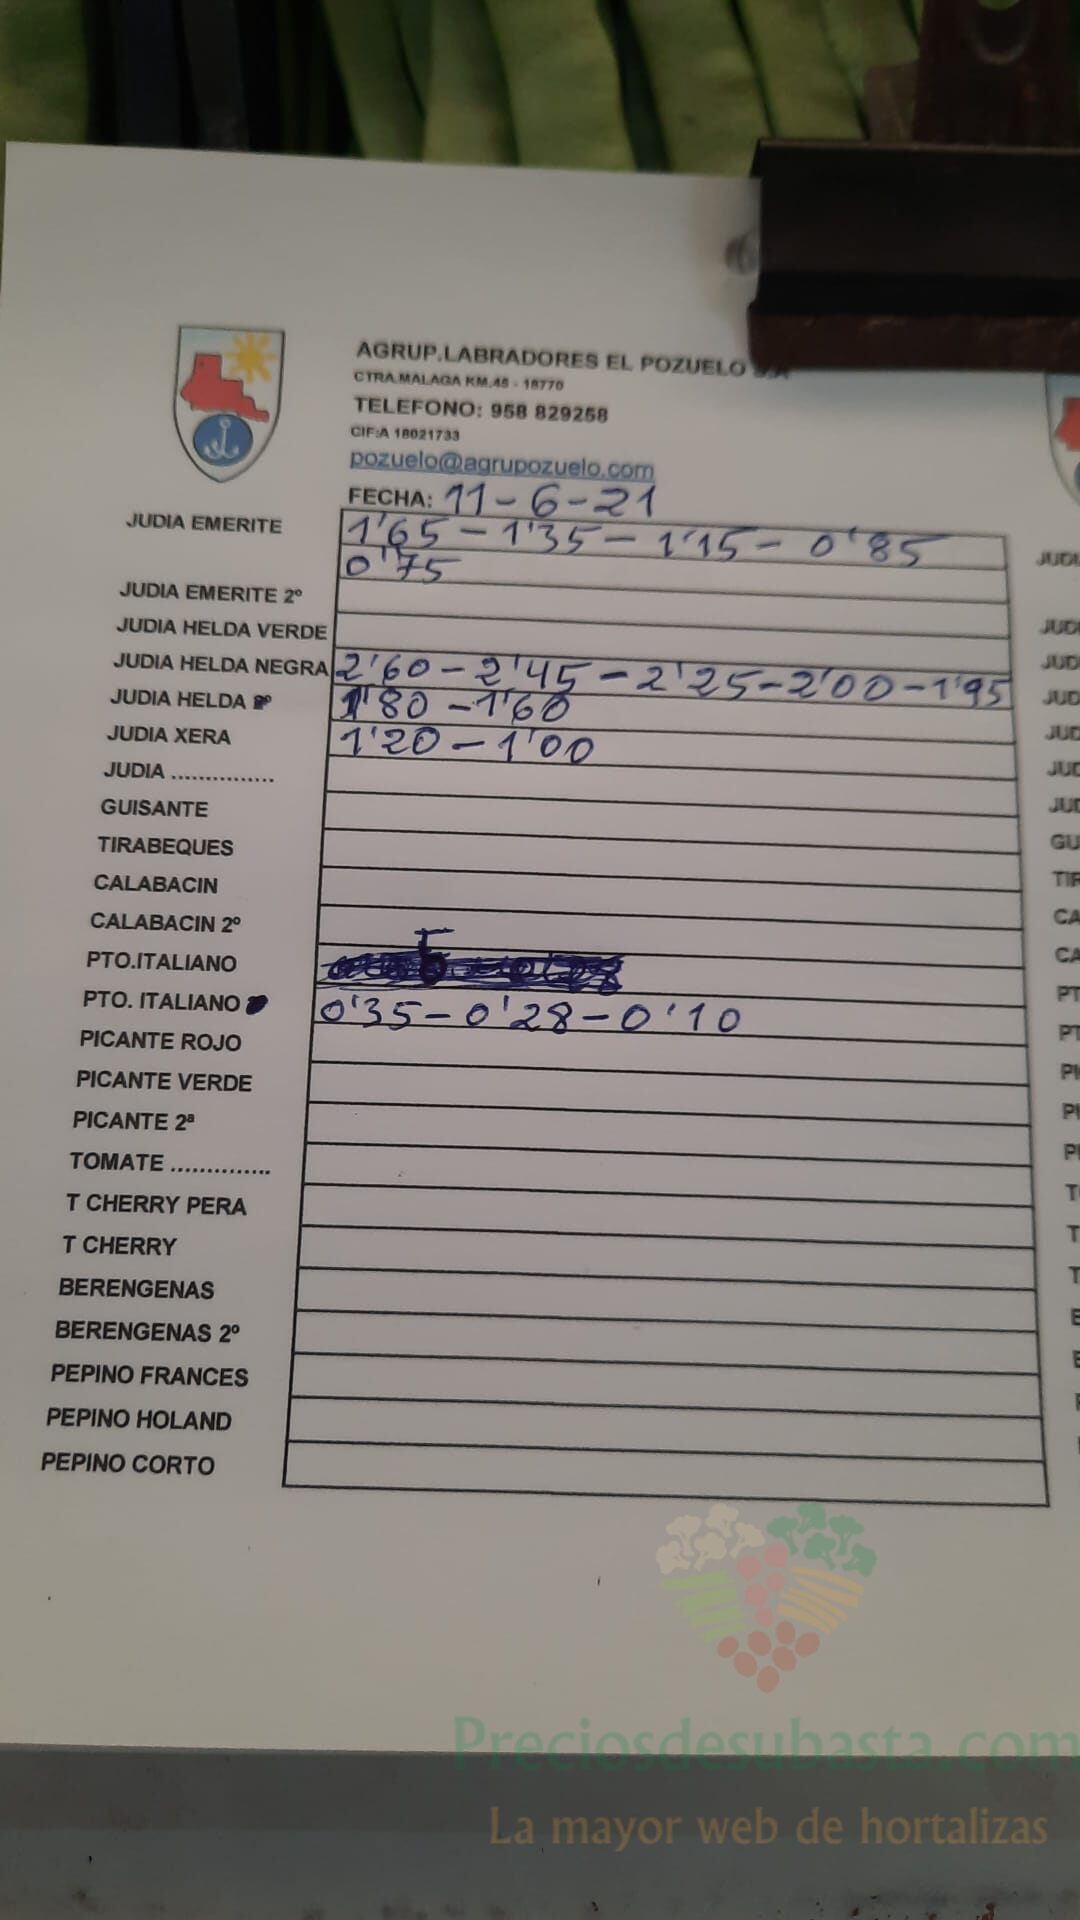 AGRUP.LABRADORES EL POZUELO S.A
CTRA.MALAGA KM.45 - 18770
TELEFONO: 958 829258
CIF:A 18021733
pozuelo@agrupozuelo.com
FECHA: 11-6-21
JUDIA EMERITE 1'65 - 1'35 - 1'15 - 0'85
0'75
JUDIA EMERITE 2º
JUDIA HELDA VERDE
JUDIA HELDA NEGRA 2'60 - 2'45 - 2'25 - 2'00 - 1'95
JUDIA HELDA 1'80 - 1'60
JUDIA XERA 1'20 - 1'00
JUDIA ...............
GUISANTE
TIRABEQUES
CALABACIN
CALABACIN 2º
PTO.ITALIANO
PTO. ITALIANO 0'35 - 0'28 - 0'10
PICANTE ROJO
PICANTE VERDE
PICANTE 2ª
TOMATE ..............
T CHERRY PERA
T CHERRY
BERENGENAS
BERENGENAS 2º
PEPINO FRANCES
PEPINO HOLAND
PEPINO CORTO
JUDI
JUD
JUD
JUD
JUD
JUD
JUD
GU
TIR
CA
CA
PT
PT
PI
PI
PI
T
T
T
Preciosdesubasta.com
La mayor web de hortalizas